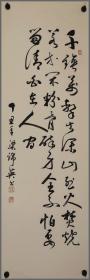 千錘萬擊出深山烈火焚燒
若等閒粉骨碎身全不怕要
留清白在人間
丁丑年